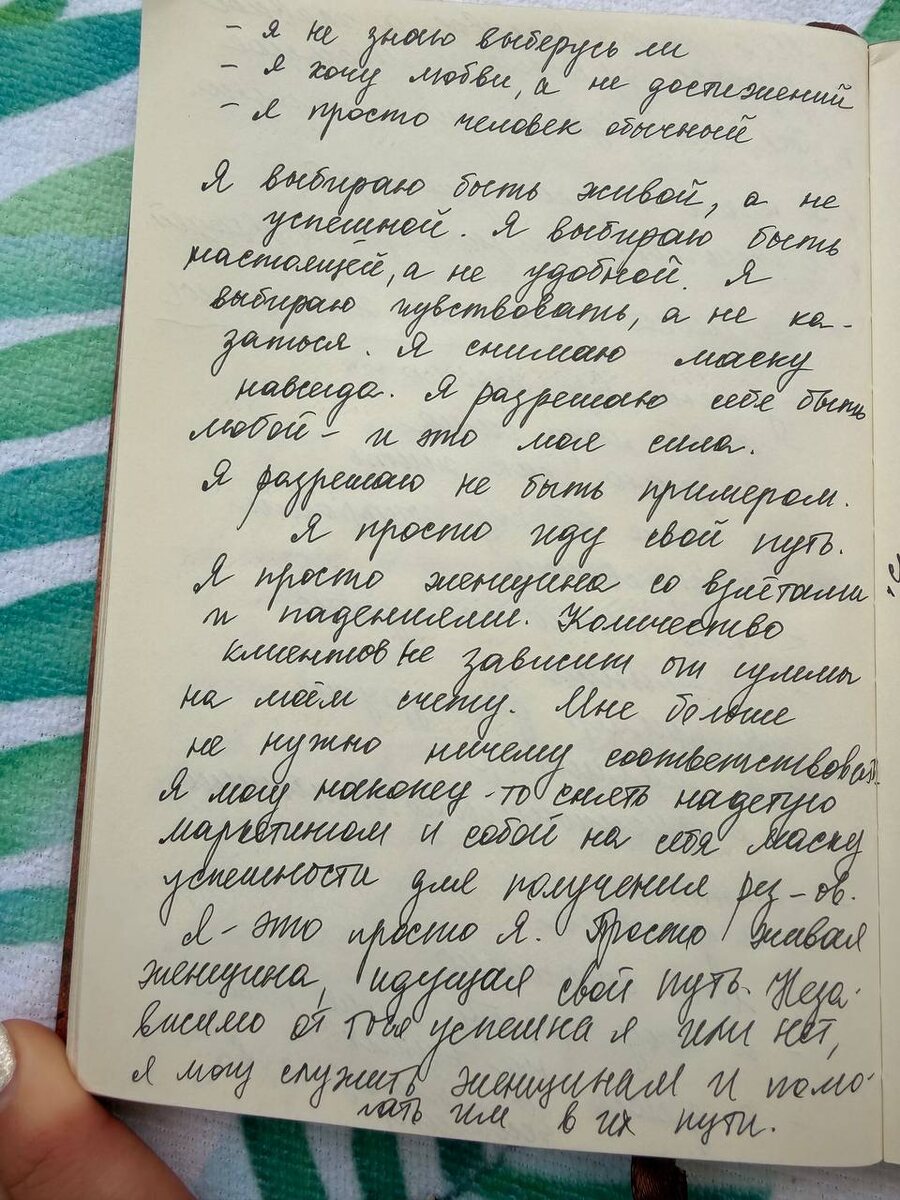 - я не знаю выберусь ли
- я хочу любви, а не достижений
- я просто человек обычный
Я выбираю быть живой, а не
успешной. Я выбираю быть
настоящей, а не удобной. Я
выбираю чувствовать, а не ка-
заться. Я снимаю маску
навсегда. Я разрешаю себе быть
любой - и это моя сила.
Я разрешаю не быть примером.
Я просто иду свой путь.
Я просто женщина со взлётами
и падениями. Количество
клиентов не зависит от суммы
на моём счету. Мне больше
не нужно ничему соответствовать.
Я могу наконец-то снять надетую
маркетингом и собой на себя маску
успешности для получения рез-ов.
Я - это просто Я. Просто живая
женщина, идущая свой путь. Неза-
висимо от того успешна я или нет,
я могу служить женщинам и помо-
гать им в их пути.